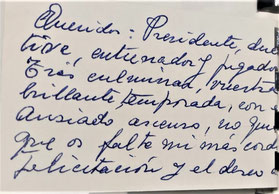 Queridos: Presidente, direc
tivo, entrenador y jugador
Tras culminada, vuestra
brillante temporada, con e
ansiado ascenso, no quie
que os falte mi más cord
felicitación y el deseo